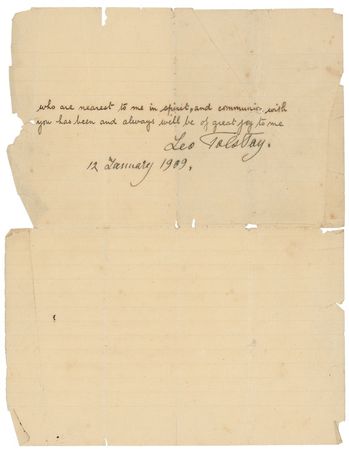 who are nearest to me in spirit, and communion with
you has been and always will be of great joy to me
Leo Tolstoy.
12 January 1909.